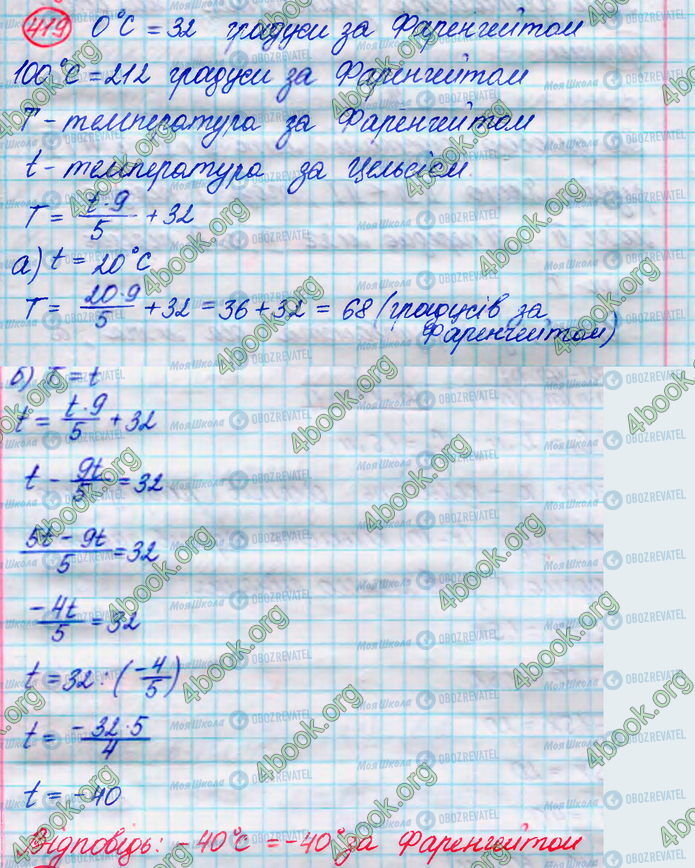 419 0°C = 32 градуси за Фаренгейтом
100°C = 212 градуси за Фаренгейтом
T - температура за Фаренгейтом
t - температура за Цельсієм
T = t·9/5 + 32
а) t = 20°C
T = 20·9/5 + 32 = 36 + 32 = 68 (градусів за
Фаренгейтом)
б) T = t
t = t·9/5 + 32
t - 9t/5 = 32
5t - 9t/5 = 32
-4t/5 = 32
t = 32 : (-4/5)
t = -32·5/4
t = -40
Відповідь: -40°C = -40° за Фаренгейтом